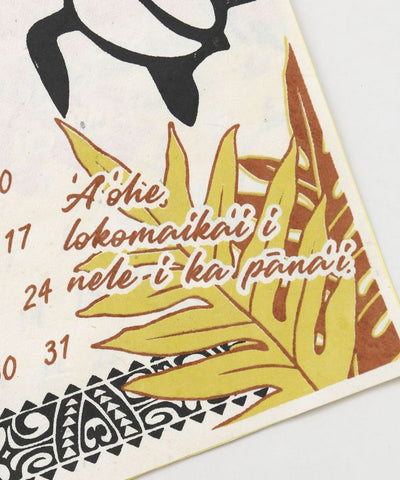 0
17
24
30 31
'A'ohe,
lokomaika'i i
nele-i-ka pāna'i.